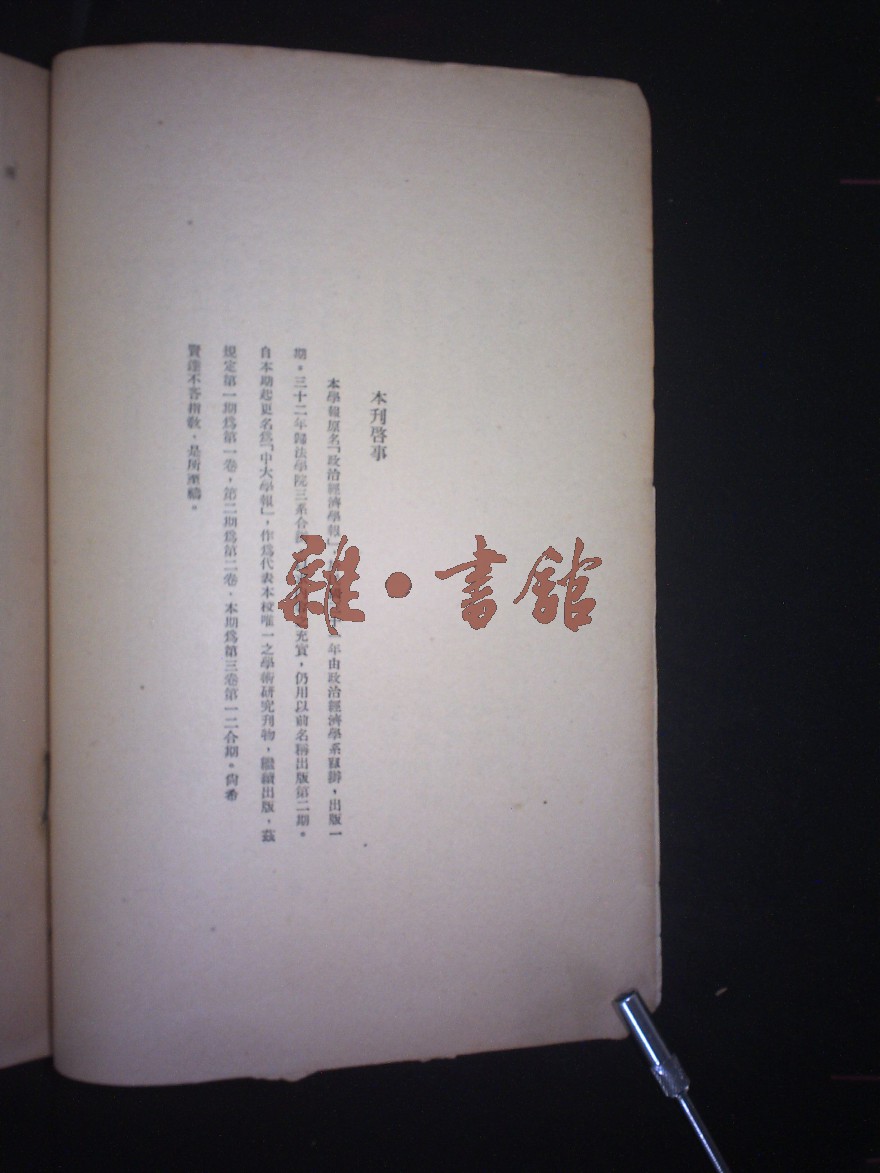 本刊啓事
本學報原名「政治經濟學報」年由政治經濟學系主辦，出版一
期。三十二年歸法學院三系合充實，仍用以前名稱出版第二期。
自本期起更名爲「中大學報」，作爲代表本校唯一之學術研究刊物，繼續出版，茲
規定第一期爲第一卷，第二期爲第二卷，本期爲第三卷第一二合期。尙希
賢達不吝指敎，是所至禱。
雜·書館